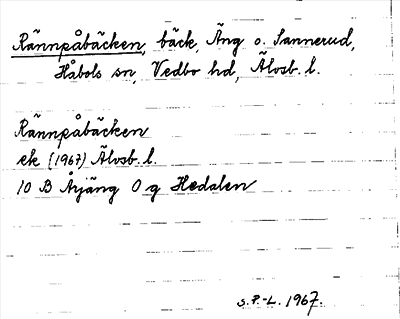 Rännpåbäcken, bäck, Äng o. Sannerud,
Håbols sn, Vedbo hd, Älvsb. l.
Rännpåbäcken
ek (1967) Älvsb. l.
10 B Årjäng O g Hedalen
S.P.-L. 1967.